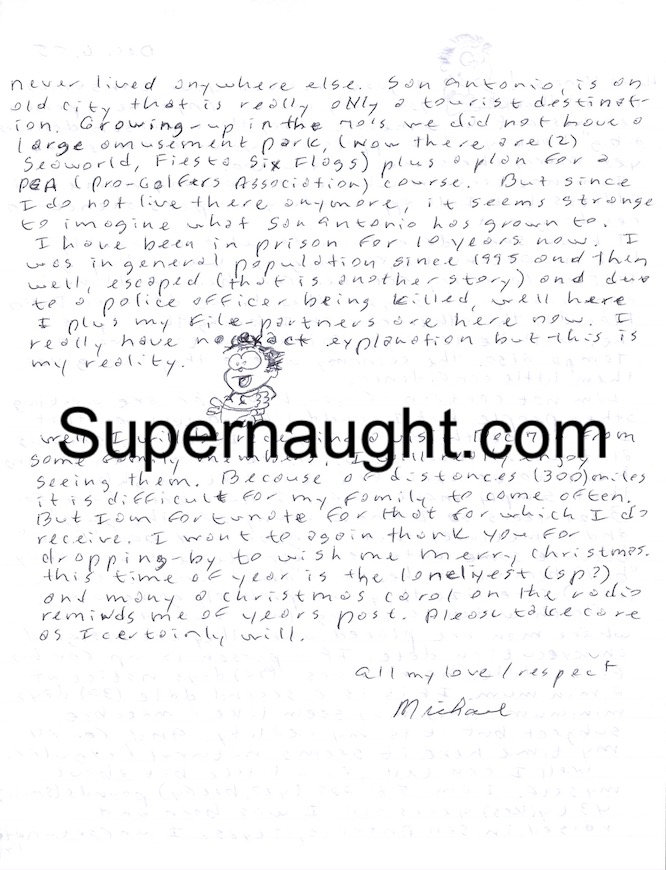 never lived anywhere else. San Antonio, is an
old city that is really ONLY a tourist destinat-
ion. Growing-up in the 70's we did not have a
large amusement park, (Now there are (2)
Seaworld, Fiesta Six Flags) plus a plan for a
PGA (Pro-Golfers Association) course. But since
I do not live there anymore, it seems strange
to imagine what San Antonio has grown to.
I have been in prison for 10 years now. I
was in general population since 1995 and then
well, escaped (that is another story) and due
to a police officer being killed, well here
I plus my file-partners are here now. I
really have no exact explanation but this is
my reality.
Supernaught.com
well I will be a Dec 7 from
some family members. I will really enjoy
seeing them. Because of distances (300) miles
it is difficult for my family to come often.
But I am fortunate for that for which I do
receive. I want to again thank you for
dropping-by to wish me merry christmas.
this time of year is the lonelyest (sp?)
and many a christmas carol on the radio
reminds me of years past. Please take care
as I certainly will.
all my love/respect
Michael